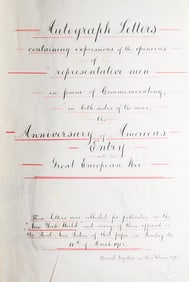 Autograph Letters
containing expressions of the opinions
of
representative men
in favour of Commemorating,
on both sides of the ocean,
the
Anniversary of America's
Entry
into the
Great European War
These letters were collected for publication in the
"New York World" and many of them appeared in
the Special Issue Section of that paper on Sunday the
of March 1918.
Bound together in this Volume 1918.